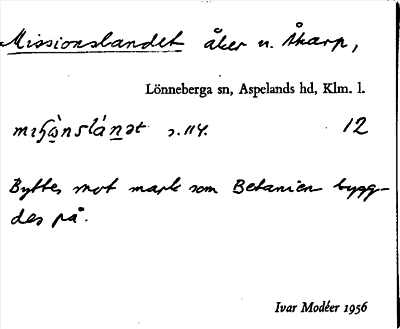 Missionslandet åker u. Åkarp,
Lönneberga sn, Aspelands hd, Klm. l.
s. 114. 12
Byttes mot mark som Betanien bygg-
des på.
Ivar Modéer 1956